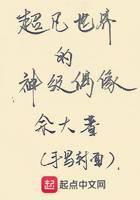 超凡世界
的
神级偶像
(手写封面)
起点中文网